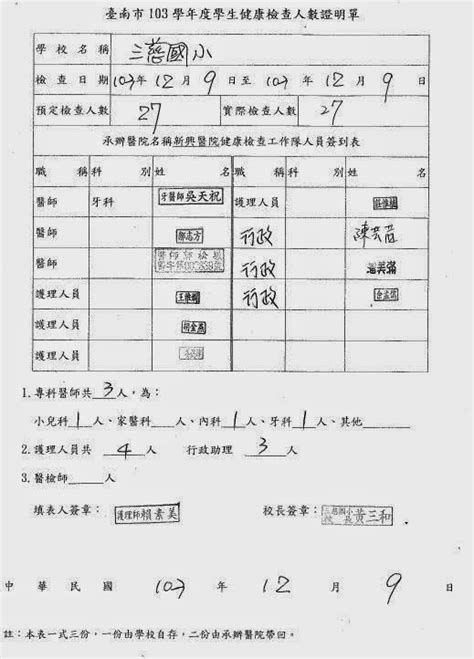 臺南市 103 學年度學生健康檢查人數證明單
學校名稱 三慈國小
檢查日期 103年12月9日至103年12月9日
預定檢查人數 27 實際檢查人數 27
承辦醫院名稱新興醫院健康檢查工作隊人員簽到表
職稱 科別 姓名 職稱 科別 姓名
醫師 牙科 牙醫師吳天祝 護理人員
醫師 行政
醫師 行政
護理人員 行政
護理人員
護理人員
1.專科醫師共 3 人,為:
小兒科 1 人、家醫科 人、內科 1 人、牙科 1 人、其他
2.護理人員共 4 人 行政助理 3 人
3.醫檢師 人
填表人簽章: 護理師賴素美 校長簽章: 黃三和
中華民國 103 年 12 月 9 日
註:本表一式三份,一份由學校自存,二份由承辦醫院帶回。